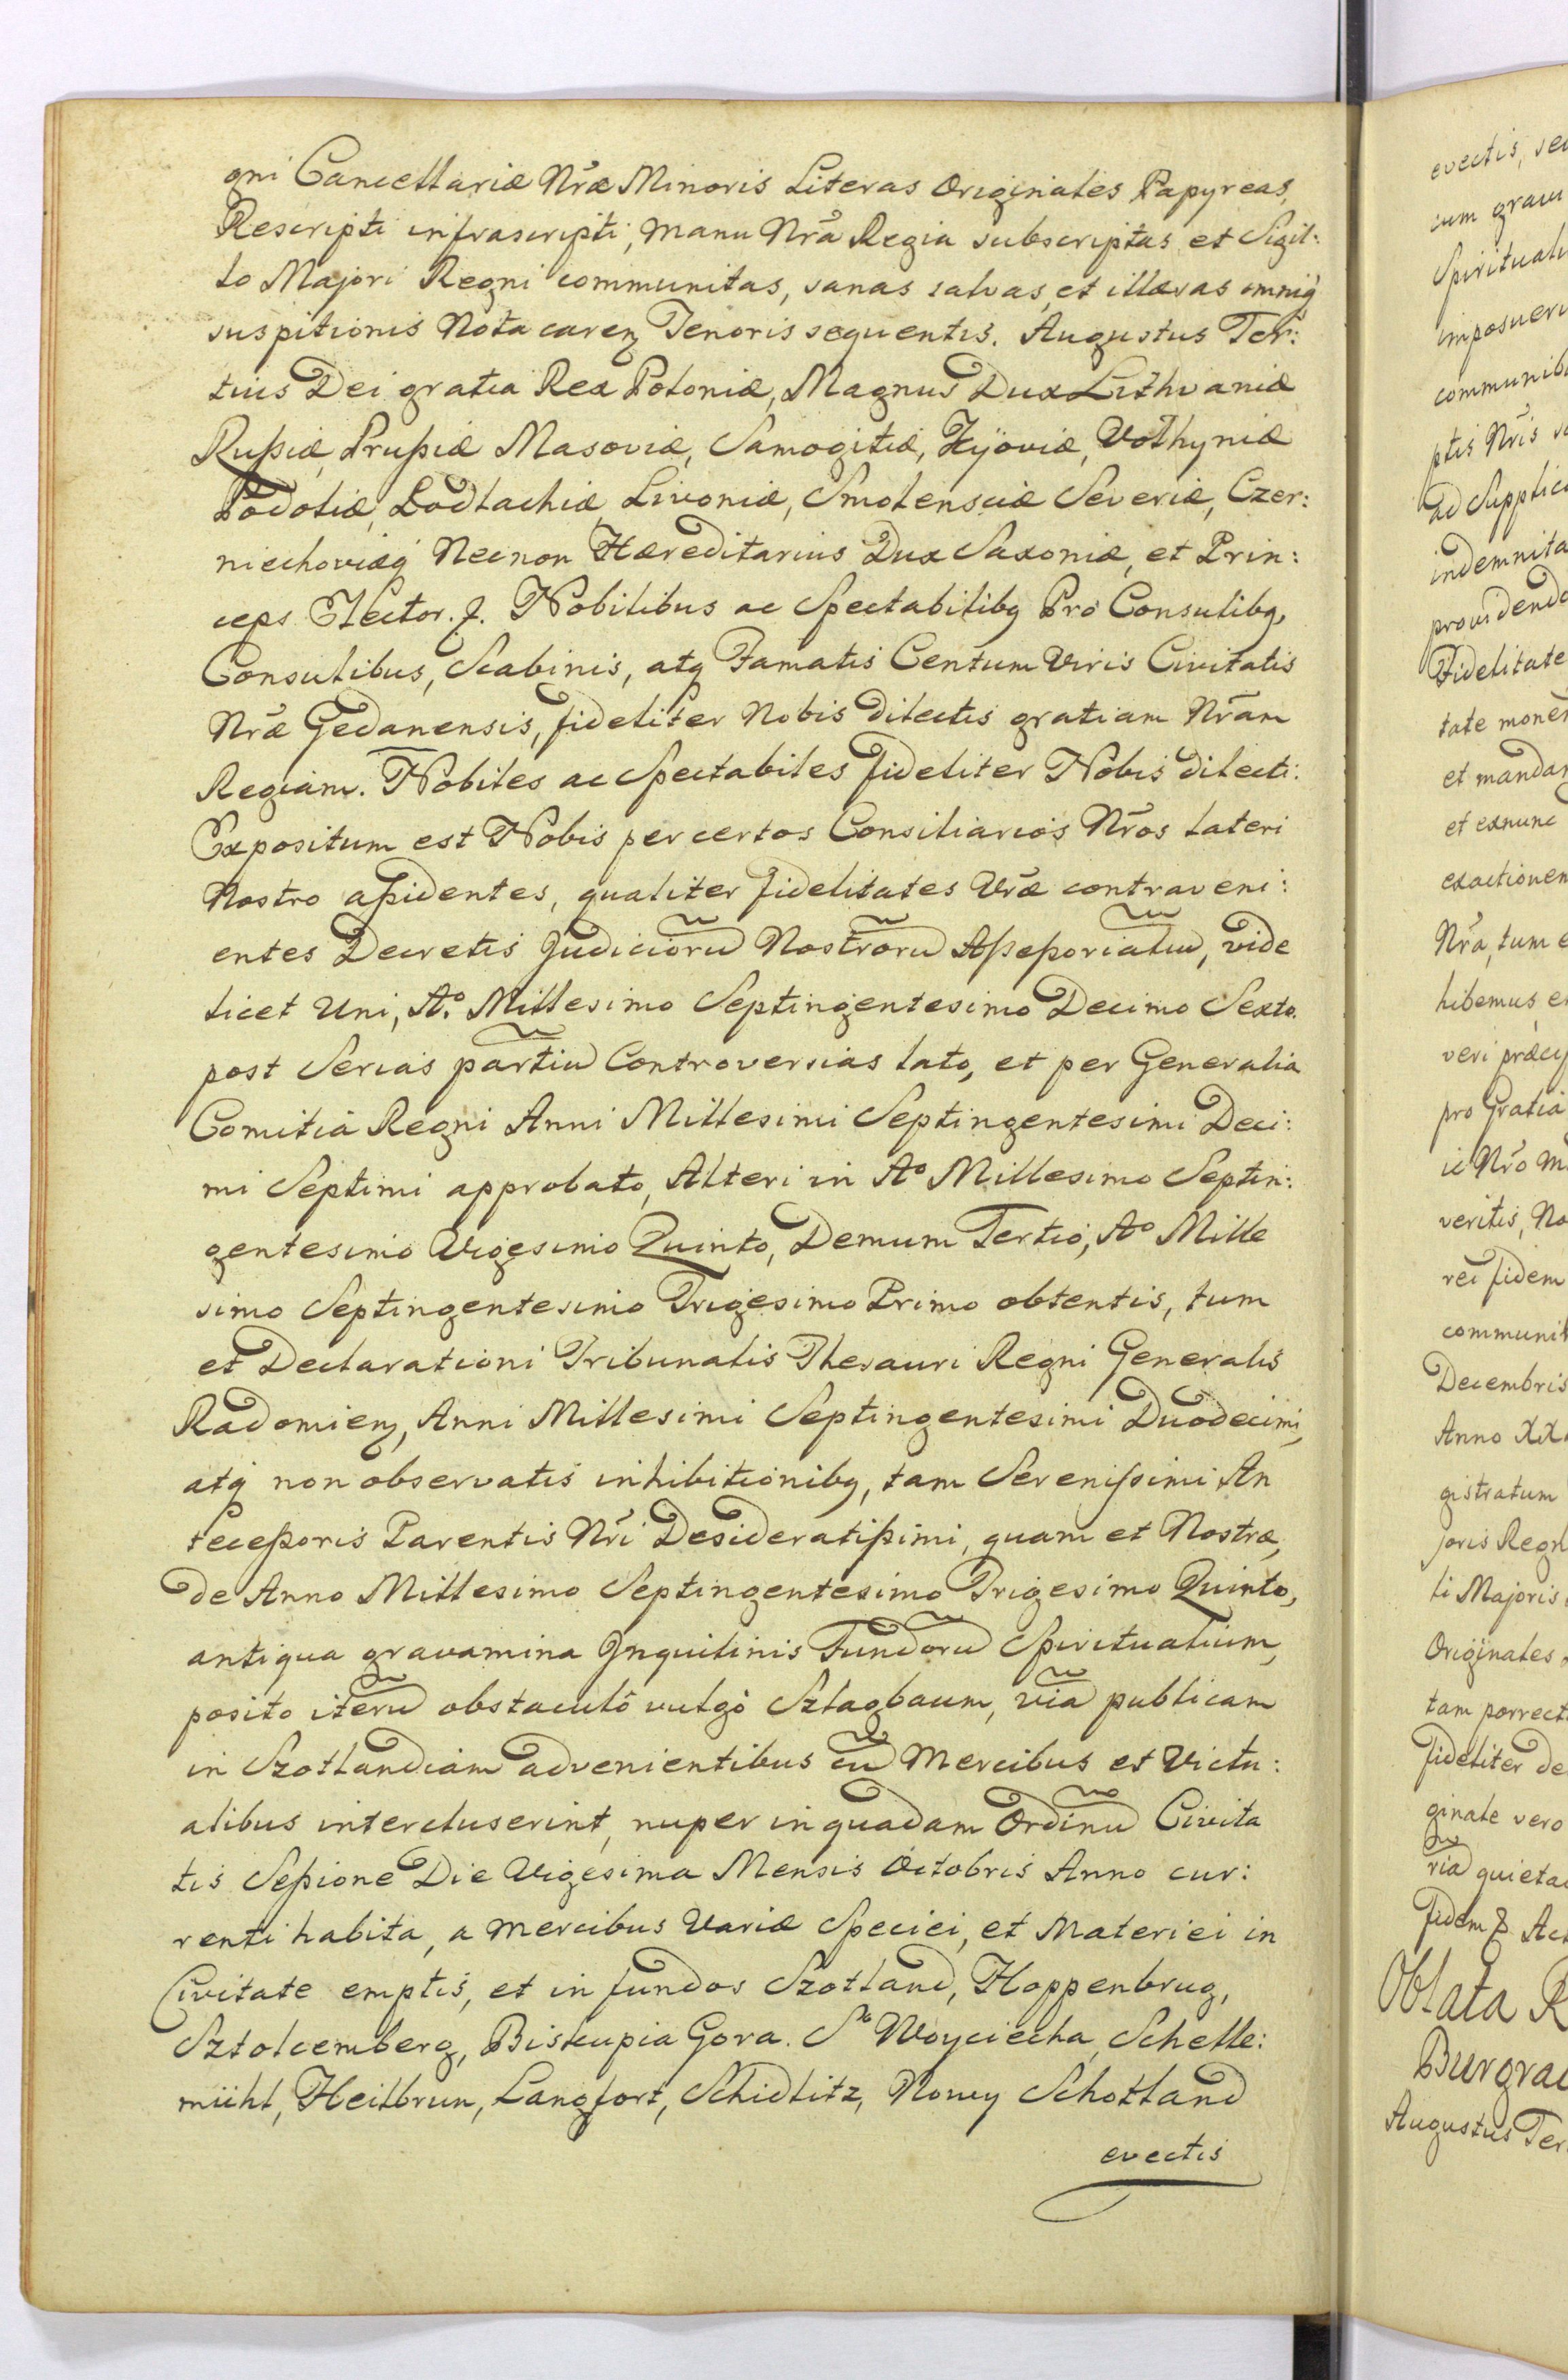 gni Cancellariæ Nr̃æ Minoris Literas Originales Papyreas,
Rescripti infrascripti, manu Nr̃a Regia subscriptas et Sigil:
lo Majori Regni communitas, sanas salvas, et illæsas omniq́
suspitionis Nota carenȝ Tenoris sequentis. Augustus Ter:
tius Dei gratia Rex Poloniæ, Magnus Dux Lithvaniæ
Rußiæ, Prußiæ Masoviæ, Samogitiæ, Kijoviæ, Volhyniæ
Podoliæ, Podlachiæ, Livoniæ, Smolensciæ Severiæ, Czer:
niechoviæq́ Necnon Hæreditarius Dux Saxoniæ, et Prin:
ceps Elector. Nobilibus ac Spectabilibꝫ Pro Consulibꝫ,
Consulibus, Scabinis, atq Famatis Centum Viris Civitatis
Nr̃æ Gedanensis, fideliter Nobis dilectis gratiam Nr̃am
Regiam. Nobiles ac Spectabiles fideliter Nobis dilecti:
Expositum est Nobis per certos Consiliarios Nr̃os lateri
Nostro aßidentes, qualiter fidelitates Vr̃æ contraveni:
entes Decretis Judiciorũ Nostrorũ Aßeßorialiũ, vide
licet Uni, Aº. Millesimo Septingentesimo Decimo Sexto.
post Serias partiũ Controversias lato, et per Generalia
Comitia Regni Anni Millesimi Septingentesimi Deci:
mi Septimi approbato, Alteri in Aº Millesimo Septin:
gentesimo Vigesimo Quinto, Demum Tertio, Aº Mille
simo Septingentesimo Trigesimo Primo obtentis, tum
et Declarationi Tribunalis Thesauri Regni Generalis
Radomienȝ, Anni Millesimi Septingentesimi Duodecimi,
atq́ non observatis inhibitionibꝫ, tam Serenißimi An
teceßoris Parentis Nr̃i Desideratißimi, quam et Nostræ,
de Anno Millesimo Septingentesimo Trigesimo Quinto,
antiqua gravamina Inquilinis Fundorũ Spiritualium,
posito iterũ obstaculô vulgò Szlagbaum, viã publicam
in Szotlandiam advenientibus cũ Mercibus et Victu:
alibus intercluserint, nuper in quadam Ordinũ Civita
tis Seßione Die Vigesima Mensis Octobris Anno cur:
renti habita, a mercibus Variæ Speciei, et Materiei in
Civitate emptis, et in fundos Szotland, Hoppenbrug,
Sztolcemberg, Biskupia Gora. Sº Woyciecha, Schelle:
mühl, Heilbrun, Langfort, Schidlitz, Nowy Schottland
evectis
evectis, se
cum grau
Spirituali
imposueri
communib
ptis Nr̃is
ad Supplic
indemnita
providendo
Fidelitate
tate monen
et manda
et exnunc
exactionem
Nr̃a, tum e
hibemus, e
veri præci
pro Gratia
ie Nr̃o
veritis, No
rei fidem
communit
Decembris
Anno XX
gistratum
joris Regn
li Majoris
Originales
tam porrect
fideliter de
ginale vero
riã quieta
fidem Act
Oblata R
Burgra
Augustus Ter